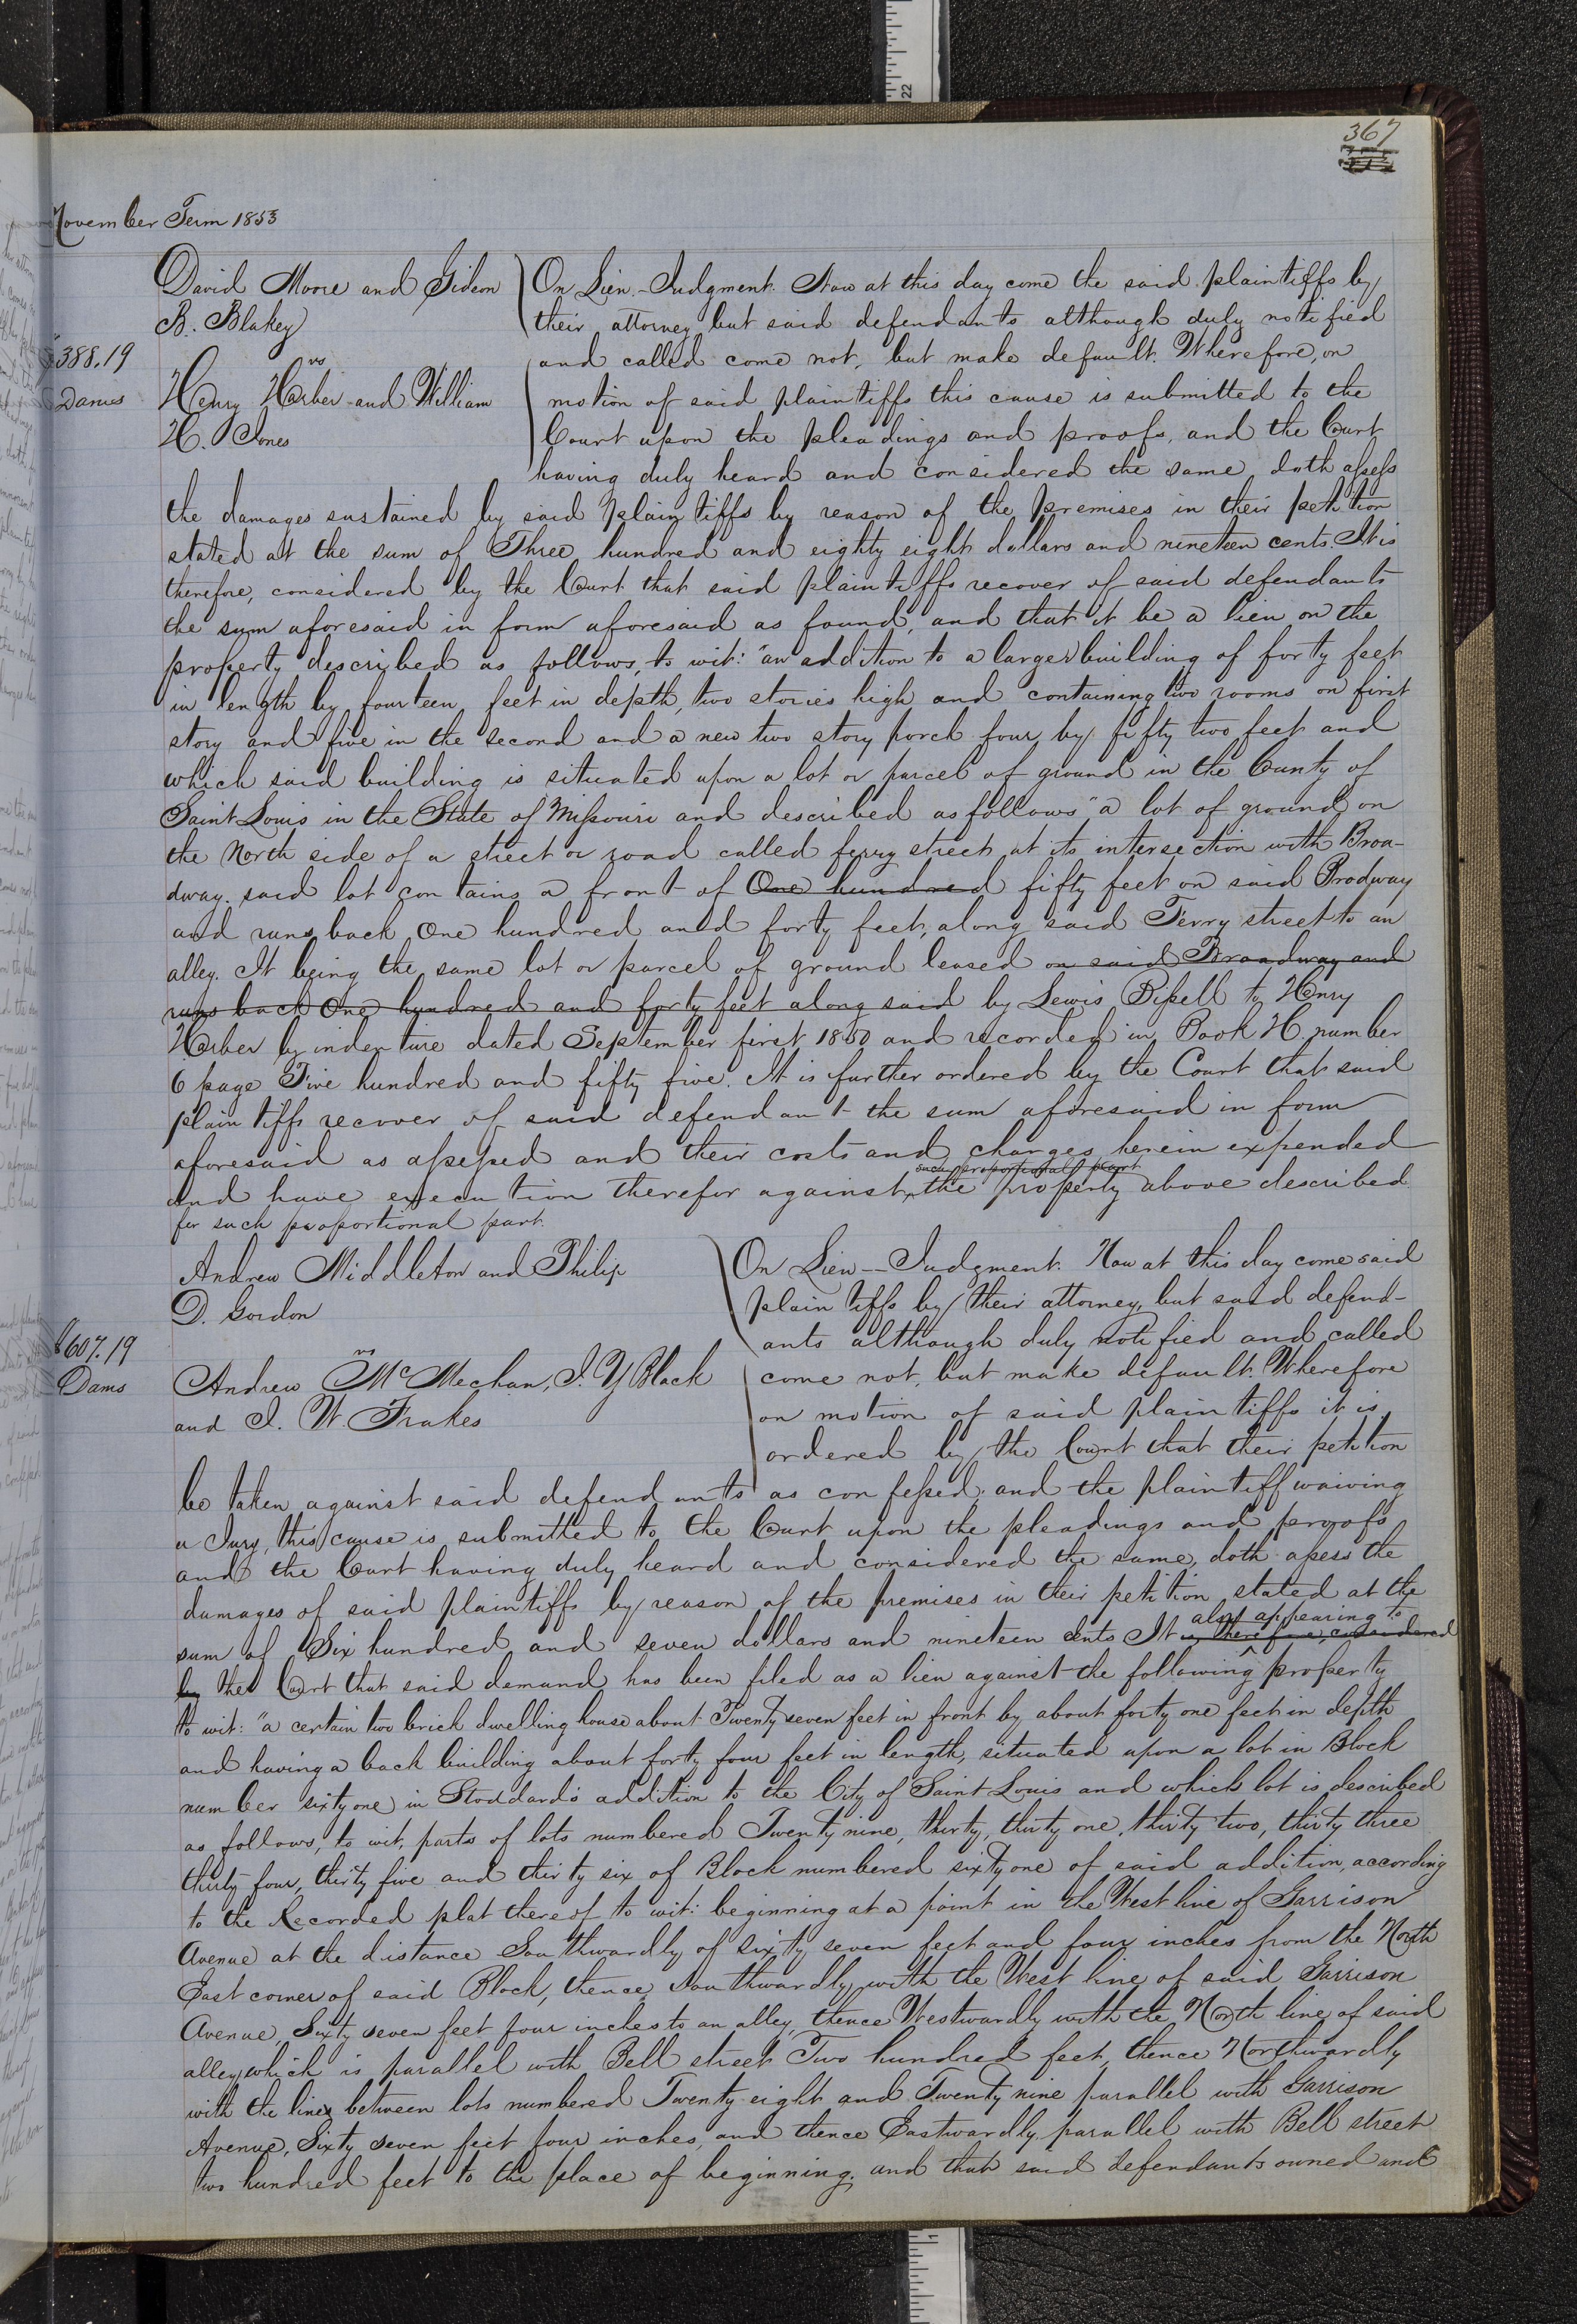 367
November Term 1853
David Moore and Gideon
B. Blakey
vs
Henry Harber and William
H. Jones
$388.19
Dams
On Lien - Judgment. Now at this day come the said plaintiffs by
their attorney but said defendants although duly notified
and called come not, but make default. Wherefore, on
motion of said plaintiffs this cause is submitted to the
Court upon the pleadings and proofs, and the Court
having duly heard and considered the same, doth assess
the damages sustained by said plaintiffs by reason of the premises in their petition
stated at the sum of Three hundred and eighty eight dollars and nineteen cents. It is
therefore, considered by the Court that said plaintiffs recover of said defendants
the sum aforesaid in form aforesaid as found, and that it be a lien on the
property described as follows, to wit: "an addition to a larger building of forty feet
in length by fourteen feet in depth, two stories high and containing two rooms on first
story and five in the second and a new two story porch four by fifty two feet and
which said building is situated upon a lot or parcel of ground in the County of
Saint Louis in the State of Missouri and described as follows "a lot of ground on
the North side of a street or road called ferry street at its intersection with Broa-
dway. said lot contains a front of One hundred fifty feet on said Brodway
and runs back One hundred and forty feet, along said Ferry street to an
alley. It being the same lot or parcel of ground leased on said Broadway and
runs back One hundred and forty feet along said by Lewis Bissell to Henry
Harber by indenture dated September first 1850 and recorded in Book H number
6 page Five hundred and fifty five. It is further ordered by the Court that said
plaintiffs recover of said defendant the sum aforesaid in form
aforesaid as assessed and their costs and charges herein expended
such proportional part
and have execution therefor against the property above described
for such proportional part.
Andrew Middleton and Philip
D. Gordon
vs
Andrew McMechan, J. Y Black
and J. W. Frakes
$607.19
Dams
On Lien -- Judgment. Now at this day come said
plaintiffs by their attorney, but said defend-
ants although duly notified and called
come not, but make default. Wherefore
on motion of said plaintiffs it is
ordered by the Court that their petition
be taken against said defendants as confessed; and the plaintiff waiving
a Jury, this cause is submitted to the Court upon the pleadings and proofs
and the Court having duly heard and considered the same, doth assess the
damages of said plaintiffs by reason of the premises in their petition stated at the
also appearing to
sum of Six hundred and seven dollars and nineteen cents It is therefore, considered
by the Court that said demand has been filed as a lien against the following property
to wit: "a certain two brick dwelling house about Twenty seven feet in front by about forty one feet in depth
and having a back building about forty four feet in length, situated upon a lot in Block
number sixty one in Stoddard's addition to the City of Saint Louis and which lot is described
as follows, to wit, parts of lots numbered Twenty nine, thirty, thirty one, thirty two, thirty three
thirty four, thirty five and thirty six of Block numbered sixty one of said addition, according
to the Recorded plat thereof to wit: beginning at a point in the West line of Garrison
Avenue at the distance Southwardly of sixty seven feet and four inches from the North
East corner of said Block, thence Southwardly with the West line of said Garrison
Avenue, Sixty seven feet four inches to an alley, thence Westwardly with the North line of said
alley which is parallel with Bell street Two hundred feet, thence Northwardly
with the line between lots numbered Twenty eight and Twenty nine parallel with Garrison
Avenue, Sixty seven feet four inches, and thence Eastwardly parallel with Bell street
two hundred feet to the place of beginning. and that said defendants owned and
22